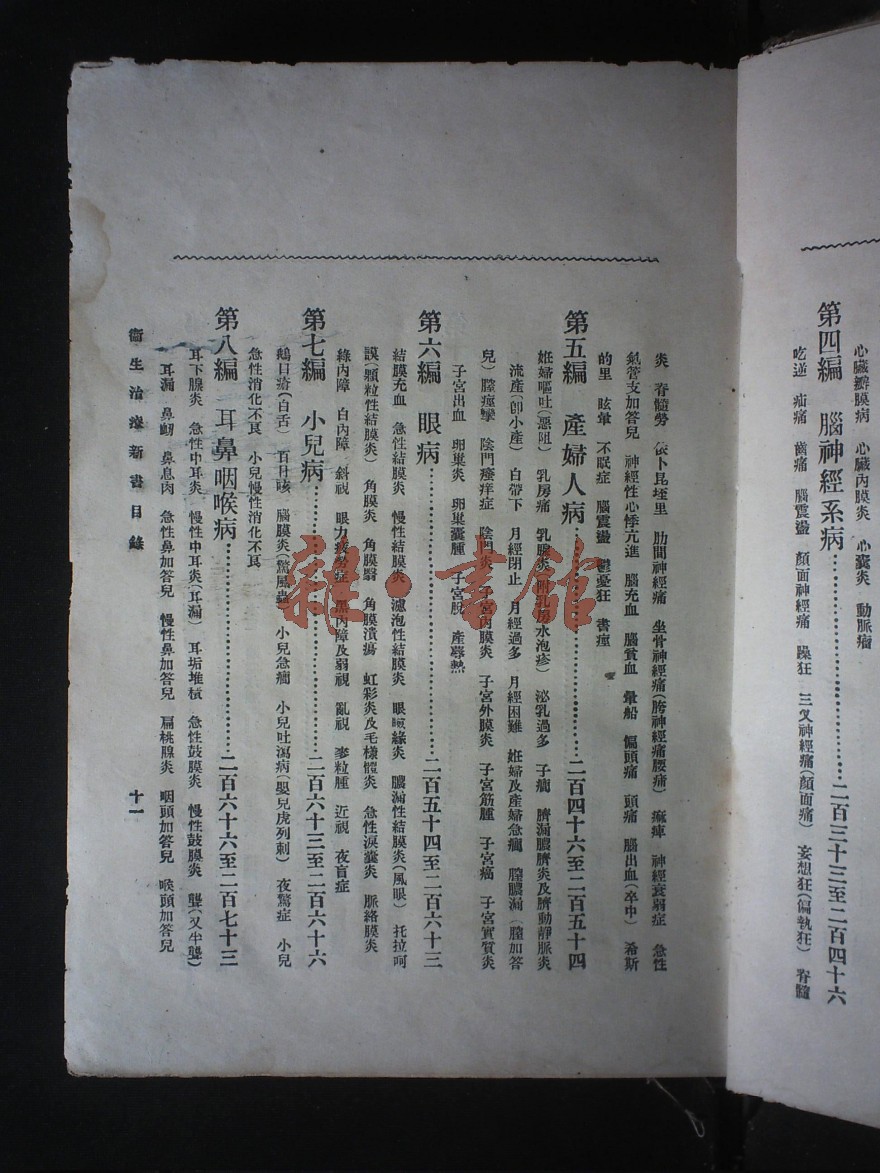 心臟瓣膜病 心臟內膜炎 心囊炎 動脈瘤
第四編 腦神經系病…………二百三十三至二百四十六
吃逆 疝痛 齒痛 腦震盪 顏面神經痛 躁狂 三叉神經痛(顏面痛) 妄想狂(偏執狂) 脊髓
炎 脊髓勞 依卜昆垤里 肋間神經痛 坐骨神經痛(胯神經痛腰痛) 痲痺 神經衰弱症 急性
氣管支加答兒 神經性心悸亢進 腦充血 腦貧血 暈船 偏頭痛 頭痛 腦出血(卒中) 希斯
的里 眩暈 不眠症 腦震盪 鬱憂狂 書痙
第五編 產婦人病…………二百四十六至二百五十四
妊婦嘔吐(惡阻) 乳房痛 乳腺炎(附乳房水泡疹) 泌乳過多 子癇 臍漏膿臍炎及臍動靜脈炎
流產(卽小產) 白帶下 月經閉止 月經過多 月經困難 妊婦及產婦急癇 膣膿漏(膣加答
兒) 膣痙攣 陰門瘙痒症 陰門炎 子宮內膜炎 子宮外膜炎 子宮筋腫 子宮癌 子宮實質炎
子宮出血 卵巢炎 卵巢囊腫 子宮脫 產褥熱
第六編 眼病…………二百五十四至二百六十三
結膜充血 急性結膜炎 慢性結膜炎 濾泡性結膜炎 眼瞼緣炎 膿漏性結膜炎(風眼) 托拉呵
謨(顆粒性結膜炎) 角膜炎 角膜翳 角膜潰瘍 虹彩炎及毛樣體炎 急性淚囊炎 脈絡膜炎
綠內障 白內障 斜視 眼力疲勞症 黑內障及弱視 亂視 麥粒腫 近視 夜盲症
第七編 小兒病…………二百六十三至二百六十六
鵝口瘡(白舌) 百日咳 腦膜炎(驚風 蟲 小兒急癇 小兒吐瀉病(嬰兒虎列剌) 夜驚症 小兒
急性消化不良 小兒慢性消化不良
第八編 耳鼻咽喉病…………二百六十六至二百七十三
耳下腺炎 急性中耳炎 慢性中耳炎(耳漏) 耳垢堆積 急性鼓膜炎 慢性鼓膜炎 聾(又半聾)
耳漏 鼻衂 鼻息肉 急性鼻加答兒 慢性鼻加答兒 扁桃腺炎 咽頭加答兒 喉頭加答兒
衞生治療新書目錄 十一
雜·書館